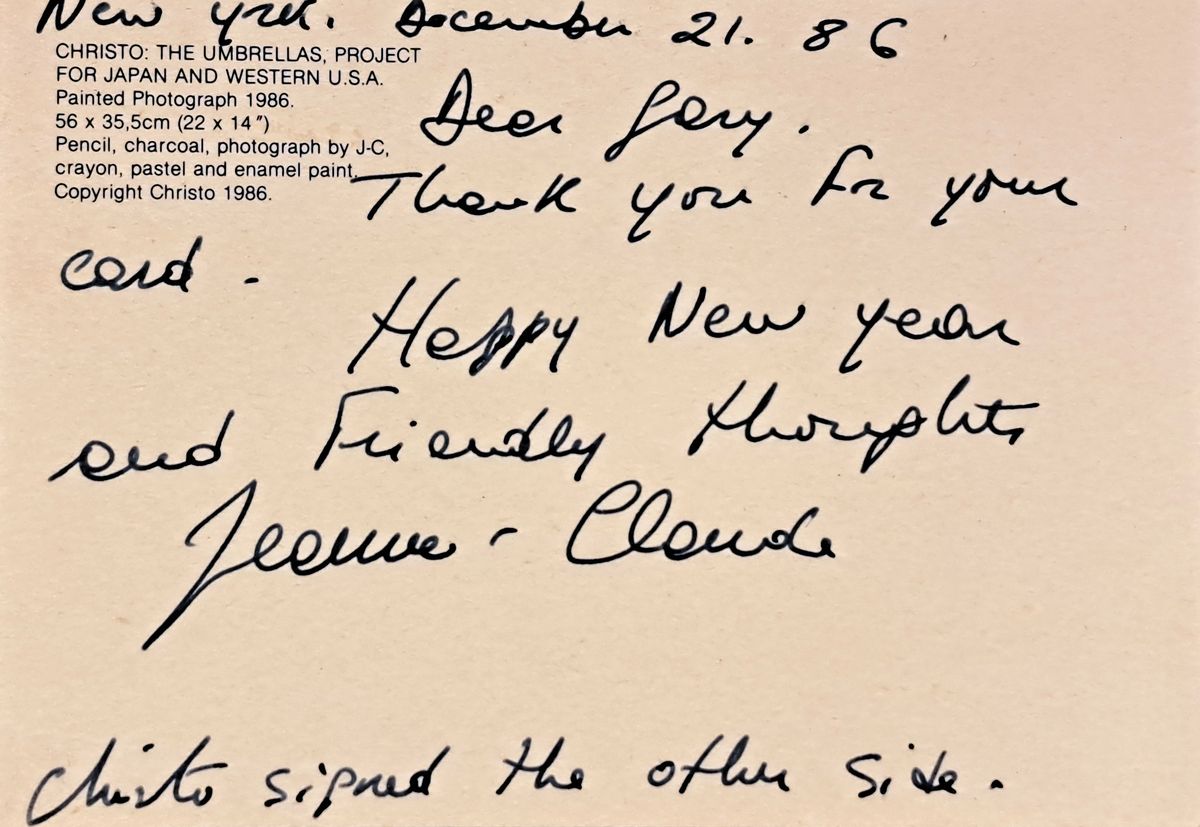 New York. December 21. 86
CHRISTO: THE UMBRELLAS, PROJECT
FOR JAPAN AND WESTERN U.S.A.
Painted Photograph 1986.
56 x 35,5cm (22 x 14")
Pencil, charcoal, photograph by J-C,
crayon, pastel and enamel paint.
Copyright Christo 1986.
Dear Gary.
Thank you for your
card.
Happy New year
and Friendly thoughts
Jeanne-Claude
Christo signed the other side.